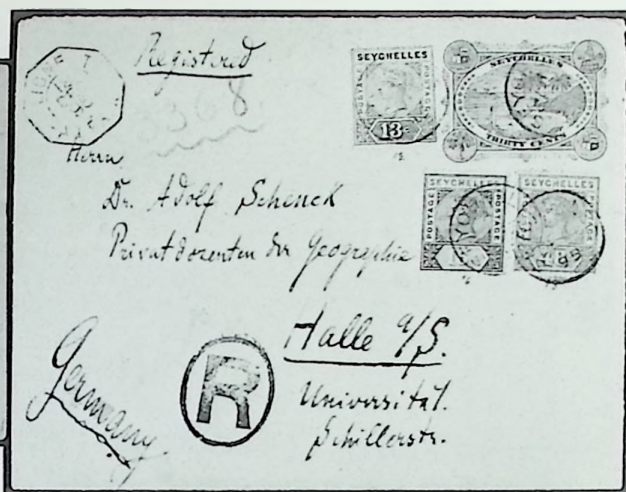 Registered
3368
SEYCHELLES
POSTAGE POSTAGE
13c
SEYCHELLES
THIRTY CENTS
Herrn
Dr. Adolf Schenck
Privatdozenten der Geographie
SEYCHELLES
POSTAGE POSTAGE
SEYCHELLES
POSTAGE POSTAGE
Halle a/S.
Universität.
Schillerstr.
Germany
R